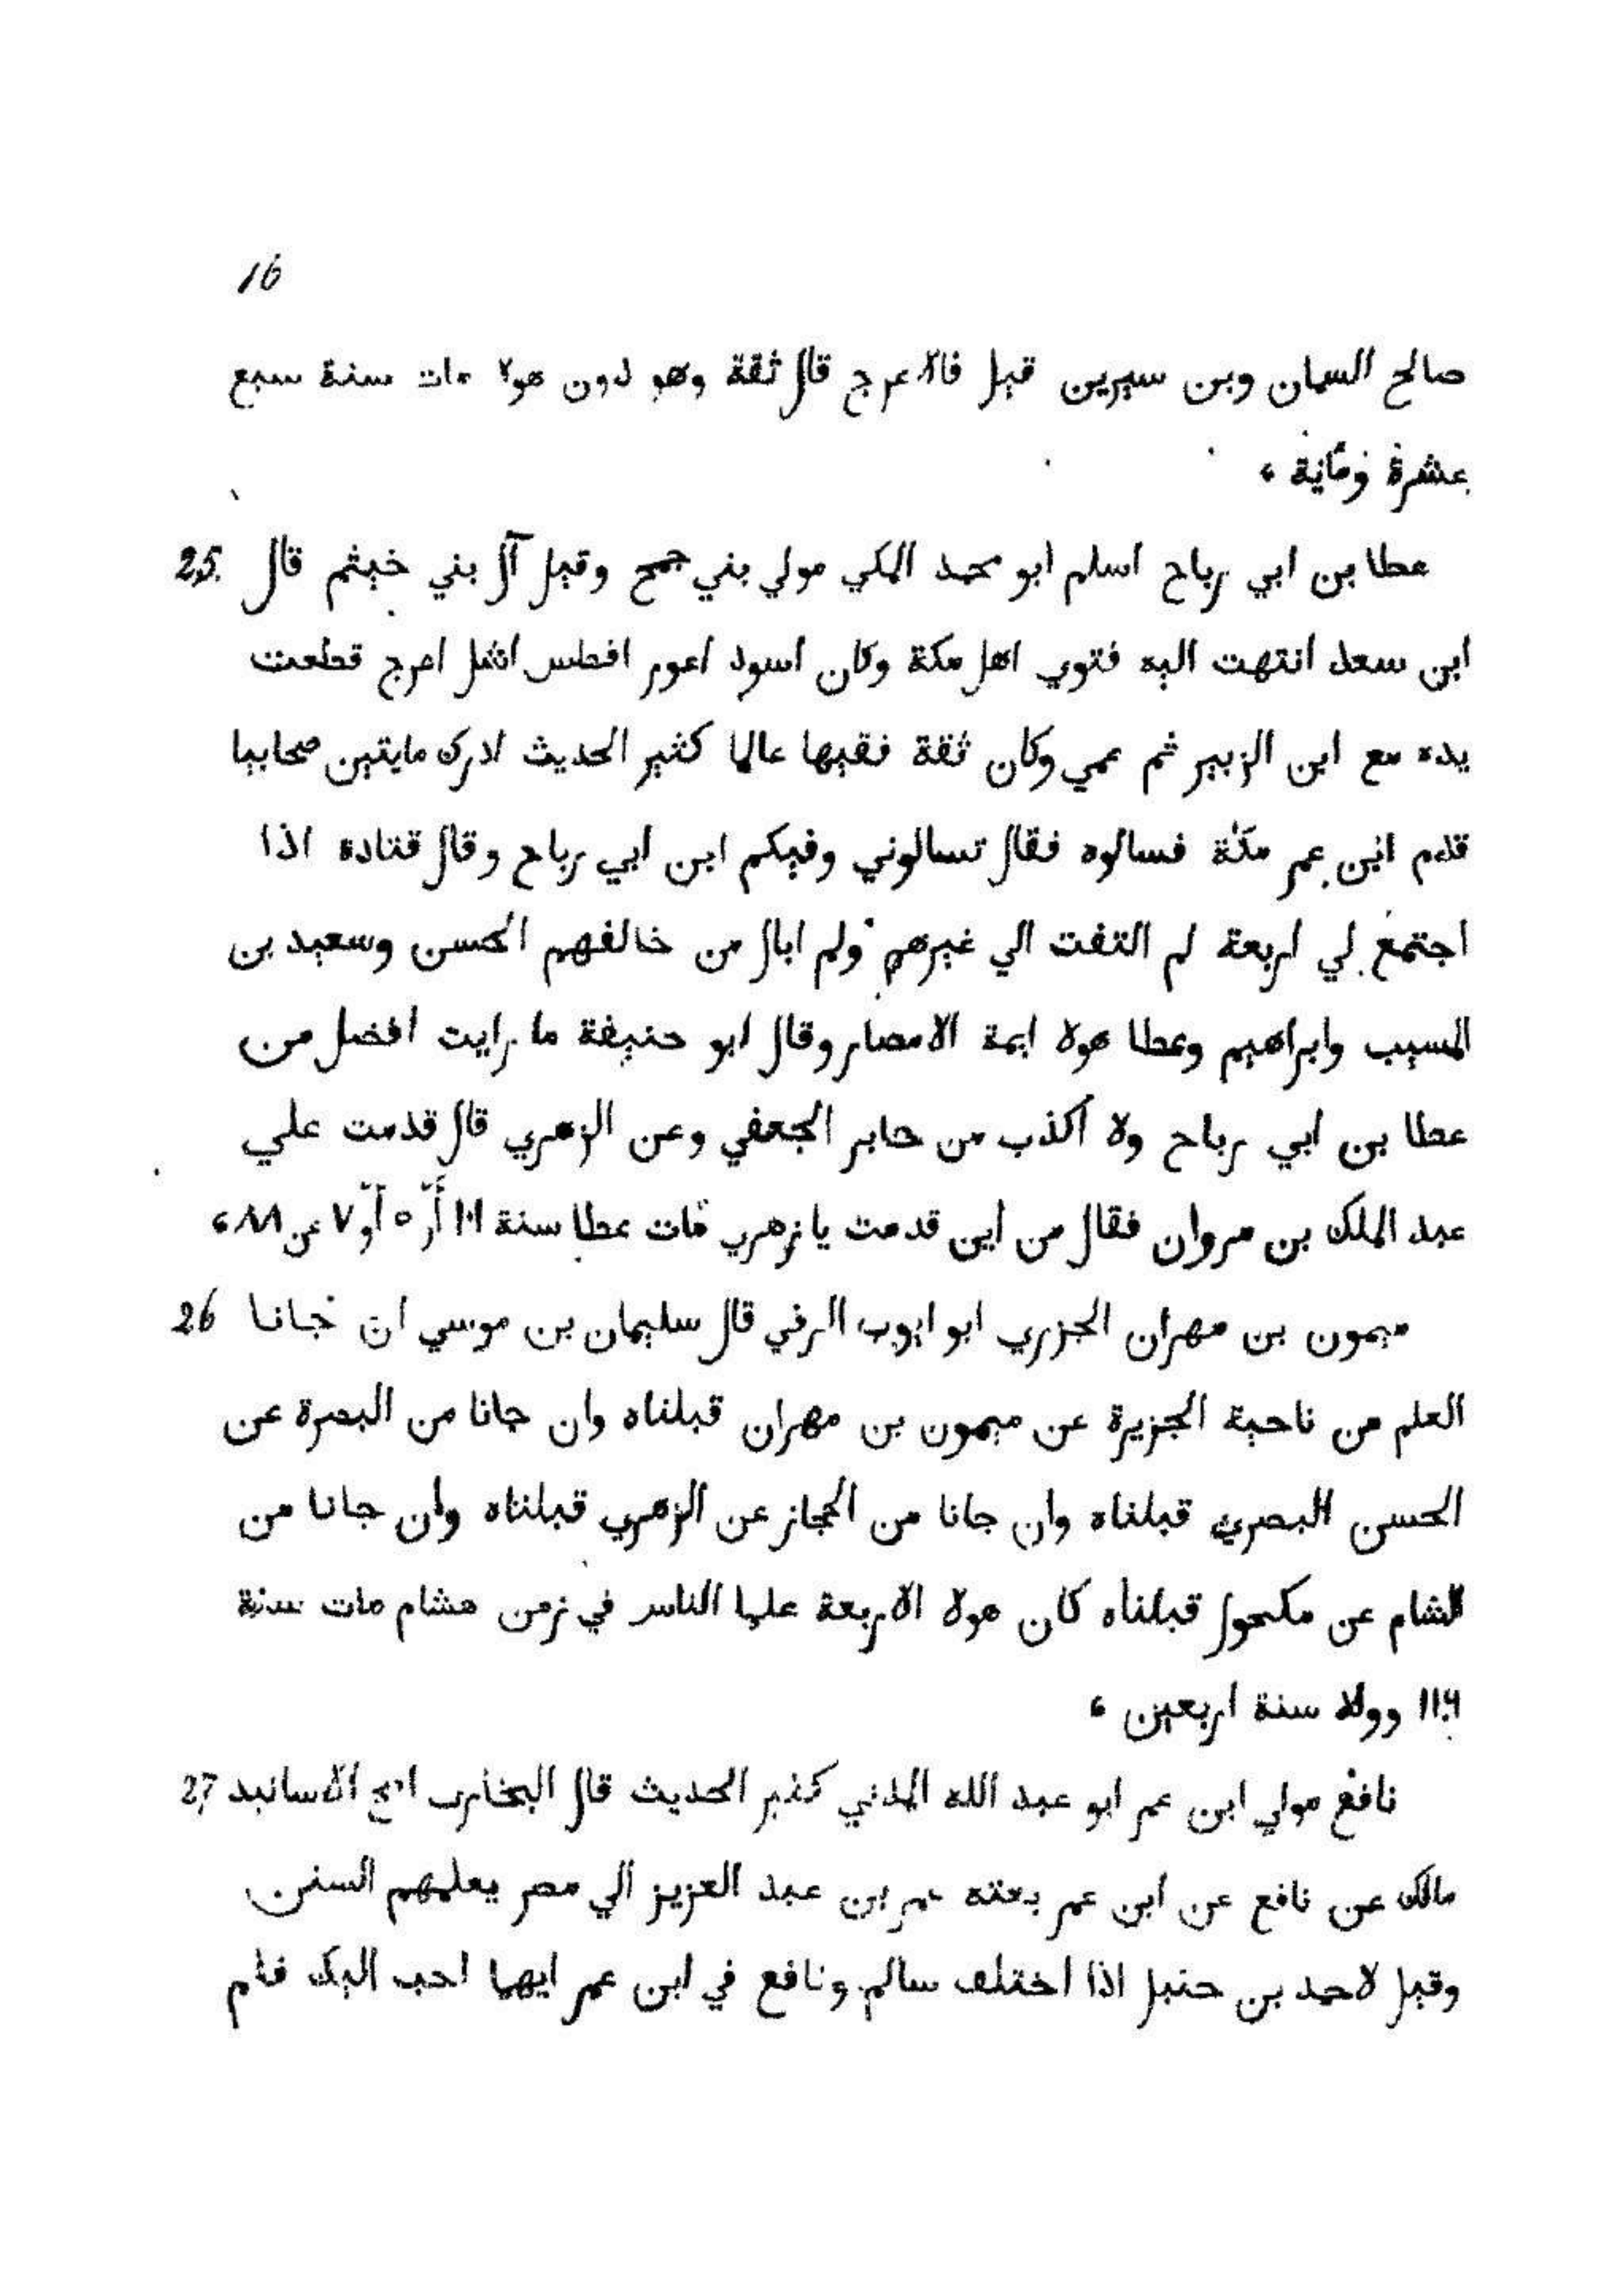 16
صالح السمان وبن سيرين قيل فالاعرج قال ثقة وهو دون هولا مات سنة سبع
عشرة وماية ،
عطا بن ابي رباح اسلم ابو محمد المكي مولي بني جمح وقيل آل بني خيثم قال 25
ابن سعد انتهت اليه فتوي اهل مكة وكان اسود اعور افطس اشل اعرج قطعت
يده مع ابن الزبير ثم عمي وكان ثقة فقيها عالما كثير الحديث ادرك مايتين صحابيا
قدم ابن عمر مكة فسالوه فقال تسالوني وفيكم ابن ابي رباح وقال قتاده اذا
اجتمع لي اربعة لم التفت الي غيرهم ولم ابال من خالفهم الحسن وسعيد بن
المسيب وابراهيم وعطا هولا ايمة الامصار وقال ابو حنيفة ما رايت افضل من
عطا بن ابي رباح ولا أكذب من جابر الجعفي وعن الزهري قال قدمت علي
عبد الملك بن مروان فقال من اين قدمت يا زهري مات عطا سنة او ٥ او ٧ عن ٨٨ ،
ميمون بن مهران الجزري ابو ايوب الرقي قال سليمان بن موسي ان جانا 26
العلم من ناحية الجزيرة عن ميمون بن مهران قبلناه وان جانا من البصرة عن
الحسن البصري قبلناه وان جانا من الحجاز عن الزهري قبلناه وان جانا من
الشام عن مكحول قبلناه كان هولا الاربعة علما الناس في زمن هشام مات سنة
وولد سنة اربعين ،
نافع مولي ابن عمر ابو عبد الله المدني كثير الحديث قال البخاري اصح الاسانيد 27
مالك عن نافع عن ابن عمر بعثه عمر بن عبد العزيز الي مصر يعلمهم السنن
وقيل لاحمد بن حنبل اذا اختلف سالم ونافع في ابن عمر ايهما احب اليك فلم